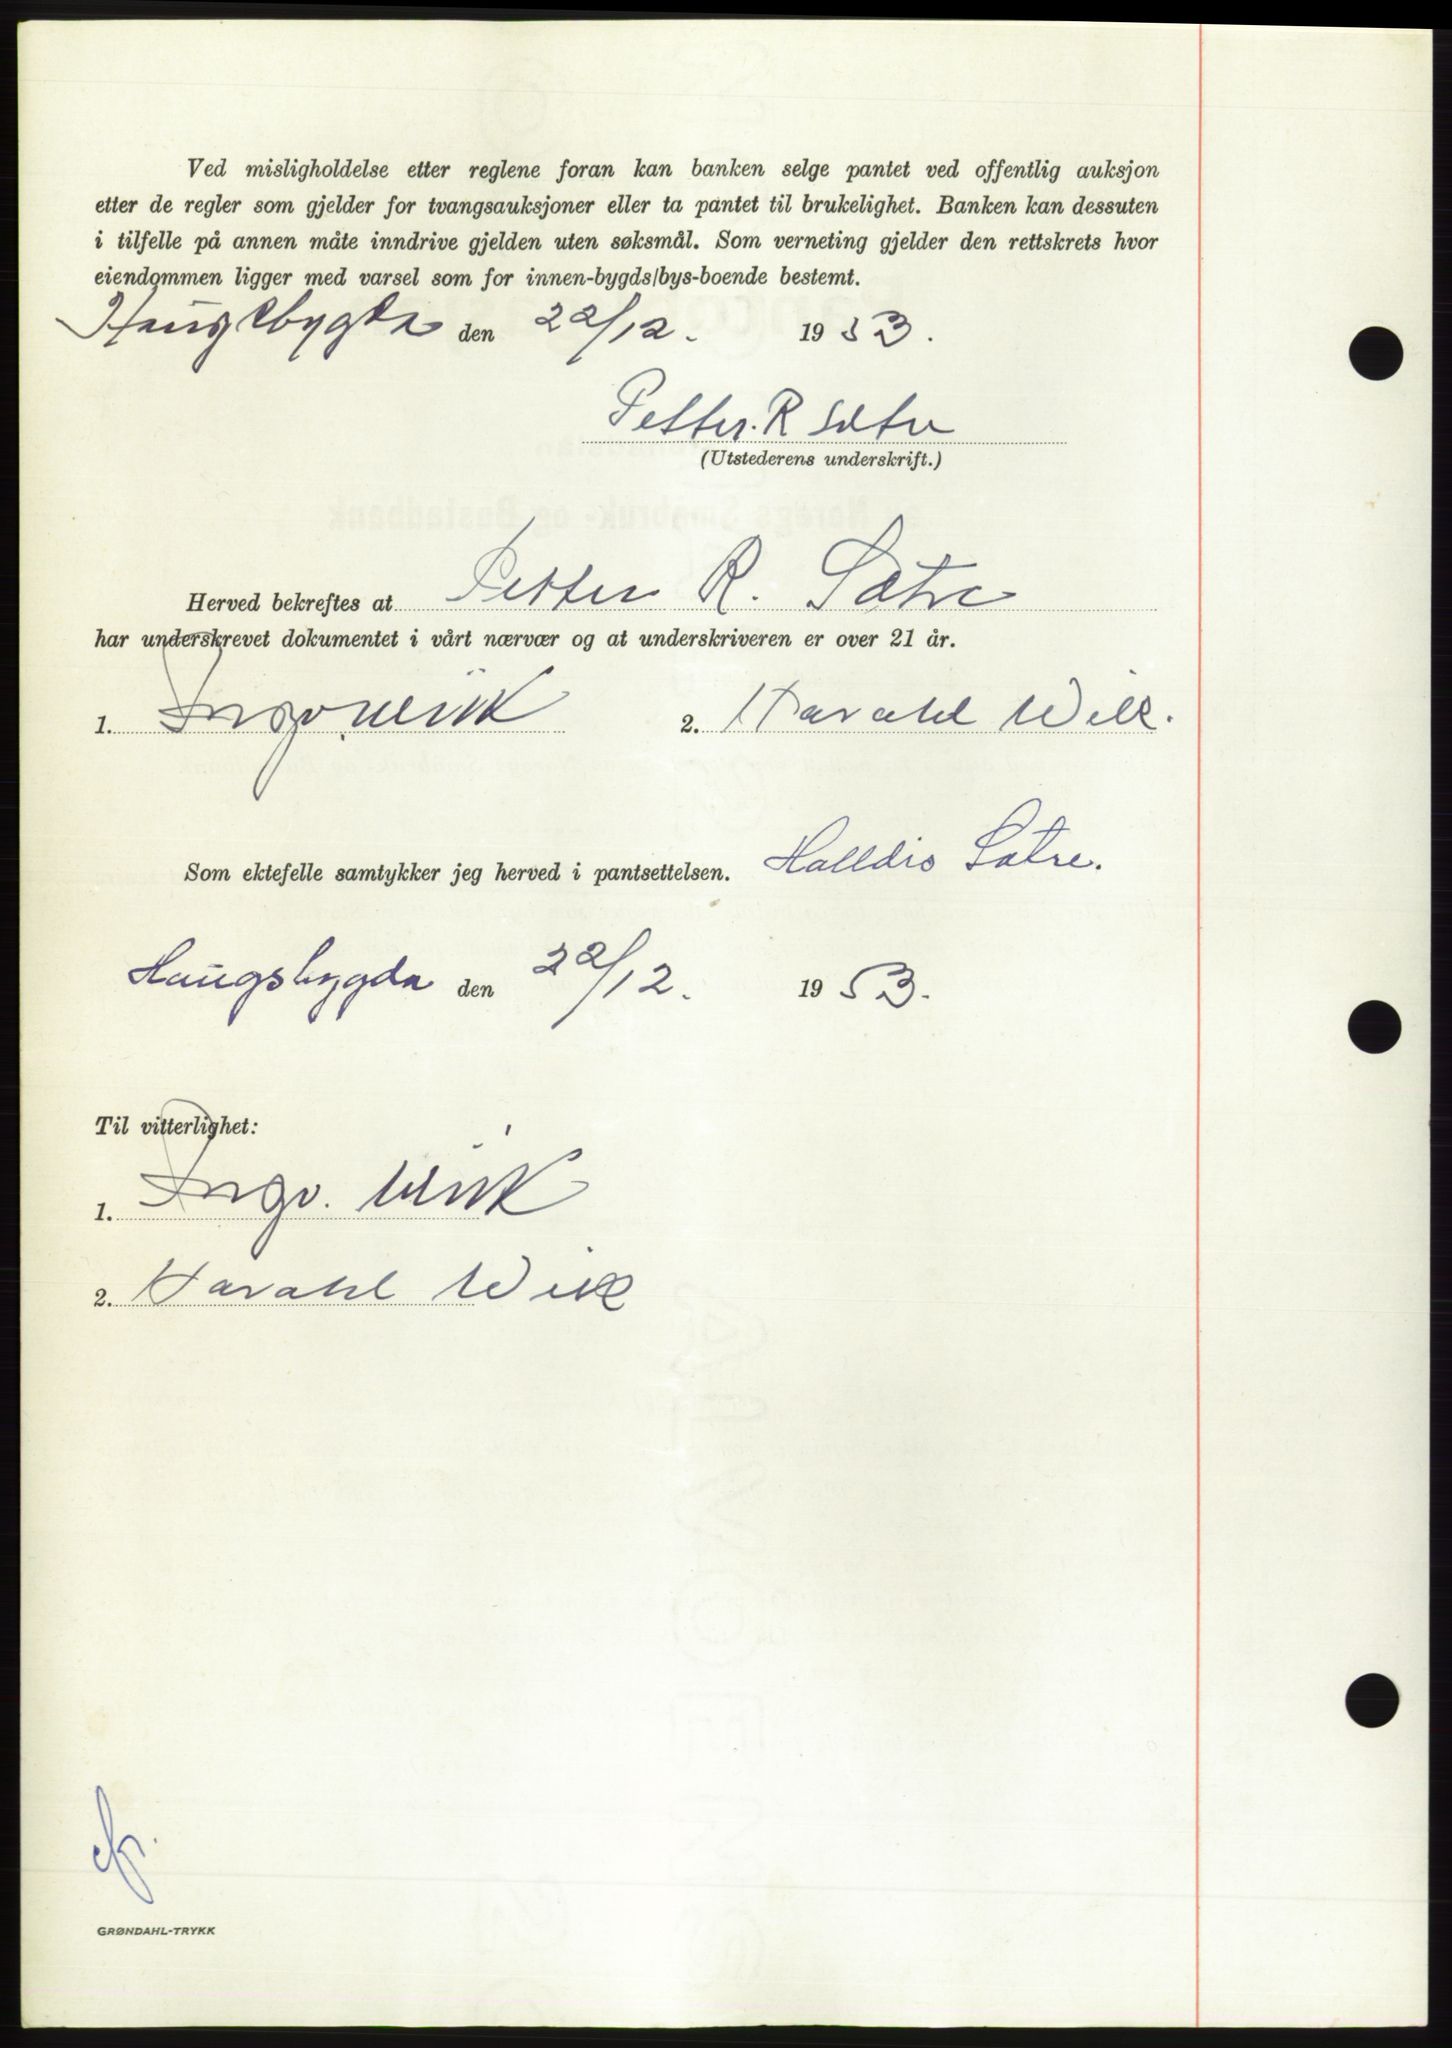 Ved misligholdelse etter reglene foran kan banken selge pantet ved offentlig auksjon
etter de regler som gjelder for tvangsauksjoner eller ta pantet til brukelighet. Banken kan dessuten
i tilfelle på annen måte inndrive gjelden uten søksmål. Som verneting gjelder den rettskrets hvor
eiendommen ligger med varsel som for innen-bygds/bys-boende bestemt.
Haugsbygda den 22/12. 1953.
Petter. R Sætre
(Utstederens underskrift.)
Herved bekreftes at Petter R. Sætre
har underskrevet dokumentet i vårt nærvær og at underskriveren er over 21 år.
1. Ingv. Wiik 2. Harald Wiik.
Som ektefelle samtykker jeg herved i pantsettelsen. Halldis Sætre.
Haugsbygda den 22/12. 1953.
Til vitterlighet:
1. Ingv. Wiik
2. Harald Wiik
GRØNDAHL-TRYKK